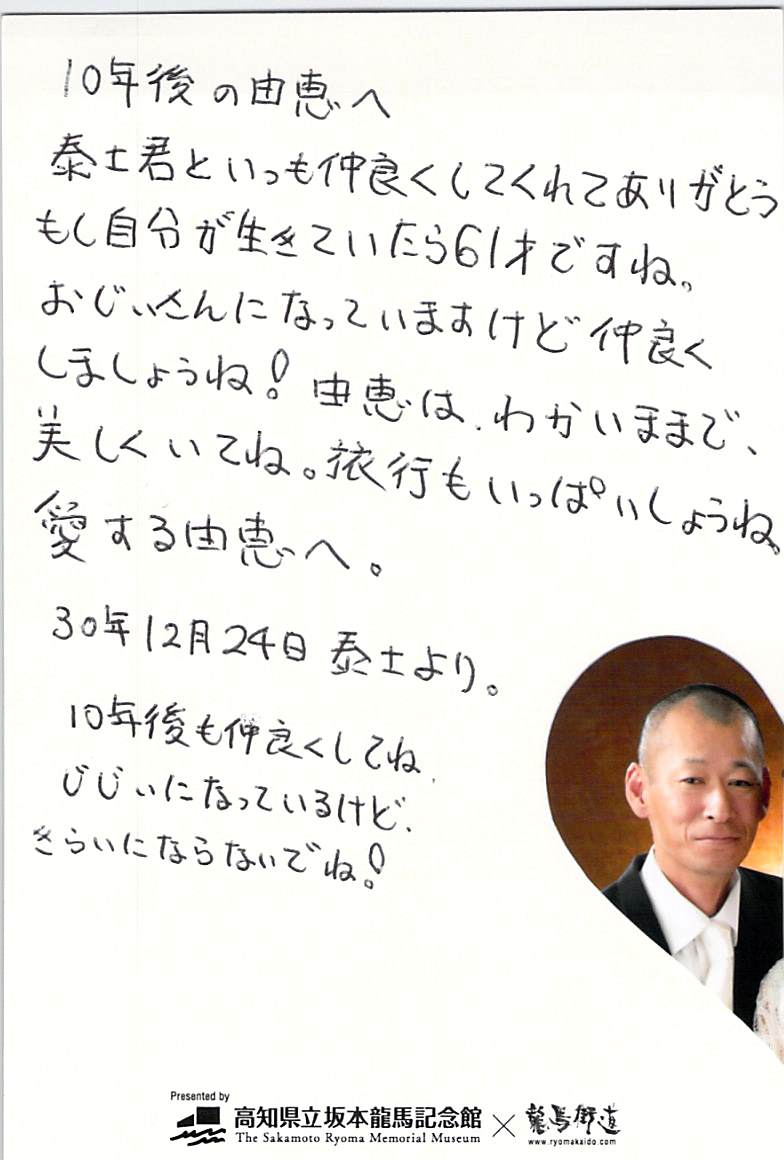 10年後の由恵へ
泰士君といつも仲良くしてくれてありがとう
もし自分が生きていたら61才ですね。
おじぃさんになっていますけど仲良く
しましょうね!由恵は、わかいままで、
美しくいてね。旅行もいっぱいしようね。
愛する由恵へ。
30年12月24日 泰士より。
10年後も仲良くしてね、
じじぃになっているけど、
きらいにならないでね!
Presented by
高知県立坂本龍馬記念館 × 龍馬街道
The Sakamoto Ryoma Memorial Museum
www.ryomakaido.com